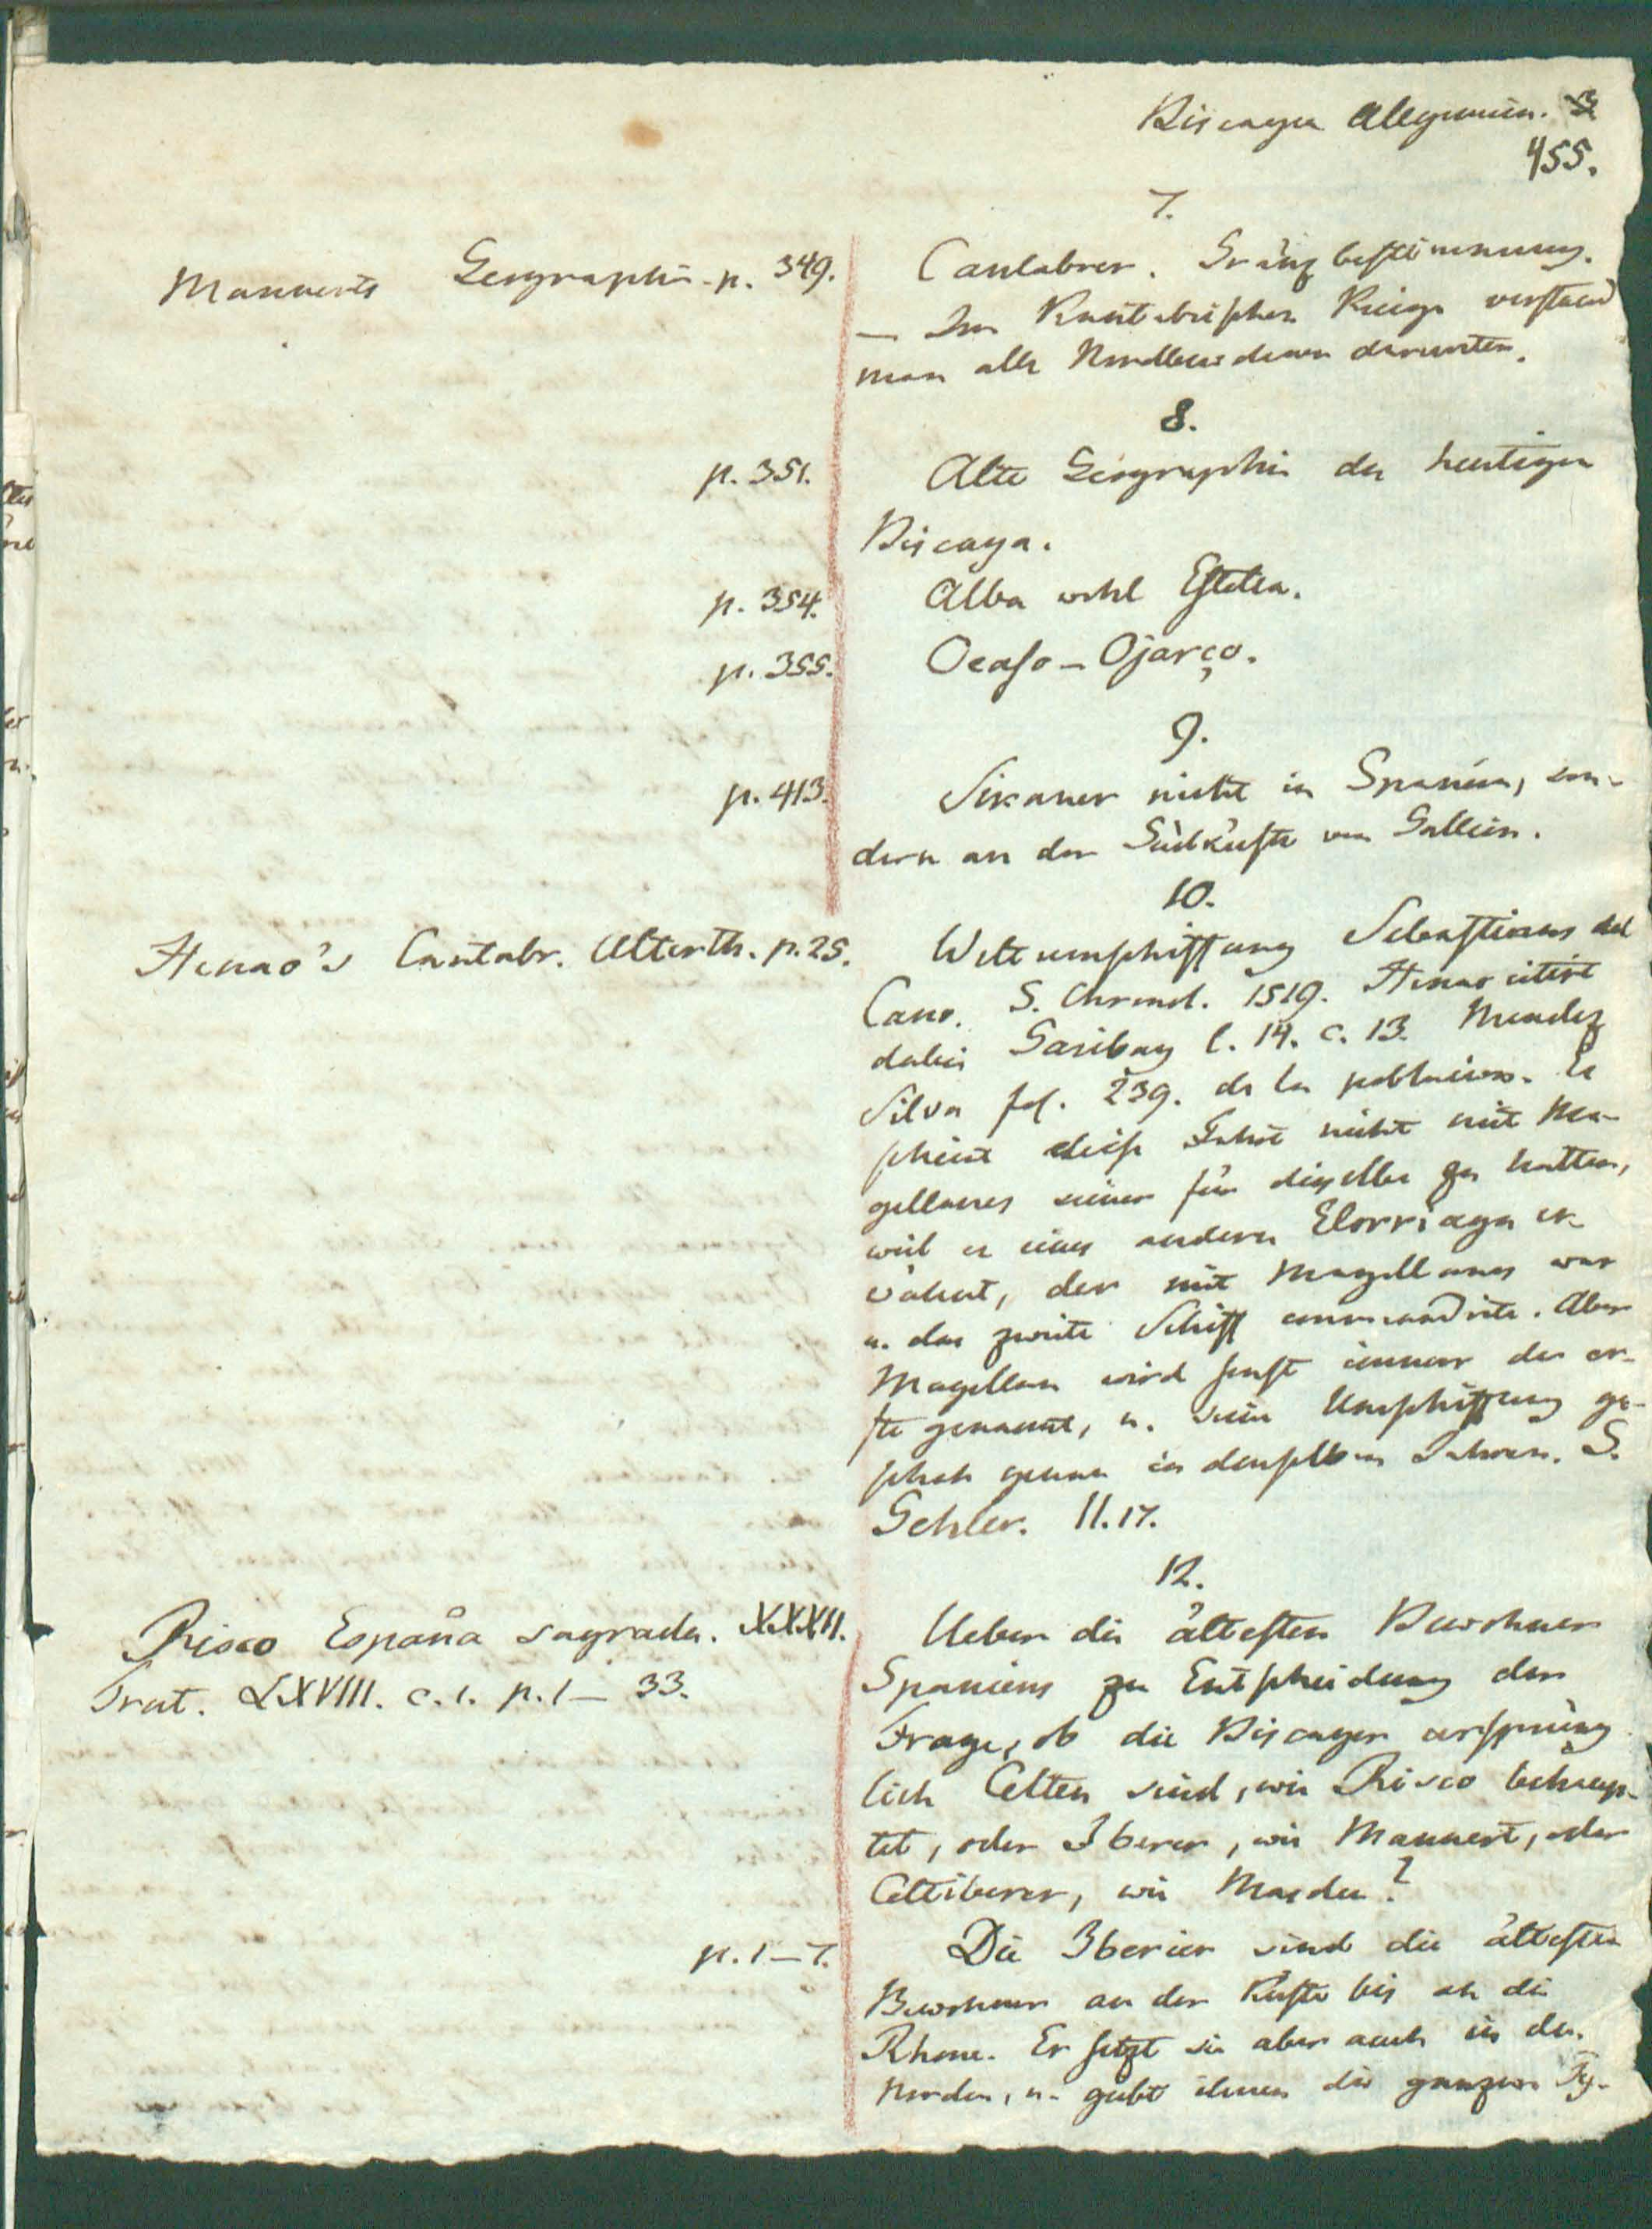 Biscaya Allgemein. 3
455.
7.
Mannerts Geographie. p. 349.
Cantabrer. Gränzbestimmung.
— Im Kantabrischen Kriege verstand
man alle Nordbewohner darunter.
8.
p. 351.
Alte Geographie der heutigen
Biscaya.
p. 354.
Alba wohl Estella.
p. 355.
Oeaso – Ojarço.
9.
p. 413.
Sikaner nicht in Spanien, son-
dern an der Südküste von Gallien.
10.
Henao's Cantabr. Alterth. p. 25.
Weltumschiffung Sebastians del
Cano. S. Chronol. 1519. Henao citirt
dabei Garibay l. 14. c. 13. Mendez
Silva fol. 239. de la poblacion. Er
scheint diese Fahrt nicht mit Ma-
gellanes seiner für dieselbe zu halten,
weil er eines andern Elorriaga er-
wähnt, der mit Magellanes war
u. das zweite Schiff commandirte. Aber
Magellan wird sonst immer der er-
ste genannt, u. seine Umschiffung ge-
schah genau in denselben Jahren. S.
Gehler. II. 17.
12.
Risco España sagrada. XXXII.
Trat. LXVIII. c. 1. p. 1 – 33.
Ueber die ältesten Bewohner
Spaniens zu Entscheidung der
Frage, ob die Biscayer ursprüng
lich Celten sind, wie Risco behaup-
tet, oder Iberer, wie Mannert, oder
Celtiberer, wie Masdeu?
p. 1 – 7.
Die Iberier sind die ältesten
Bewohner an der Küste bis an die
Rhone. Er setzt sie aber auch in den
Norden, u. giebt ihnen die ganzen Py-